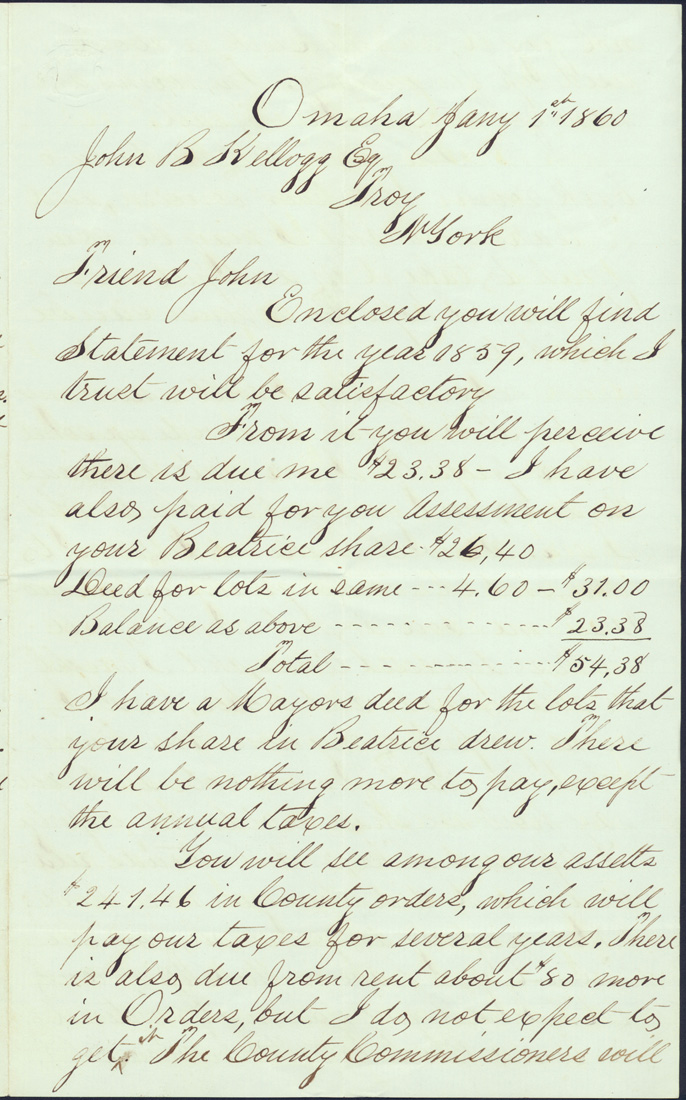 Omaha Jany 1st 1860
John B Kellogg Eq
Troy
N York
Friend John
Enclosed you will find
Statement for the year 1859, which I
trust will be satisfactory
From it you will perceive
there is due me $23.38 - I have
also, paid for you Assessment on
your Beatrice share - $26,40
Deed for lots in same --- 4.60 - $31.00
Balance as above - - - - - - - - - - - $23.38
Total - - - - - - - - - - $54,38
I have a Mayors deed for the lots that
your share in Beatrice drew. There
will be nothing more to, pay, except
the annual taxes.
You will see among our assetts
$241.46 in County orders, which will
pay our taxes for several years. There
is also, due from rent about $80 more
in Orders, but I do, not expect to,
get it. The County Commissioners will